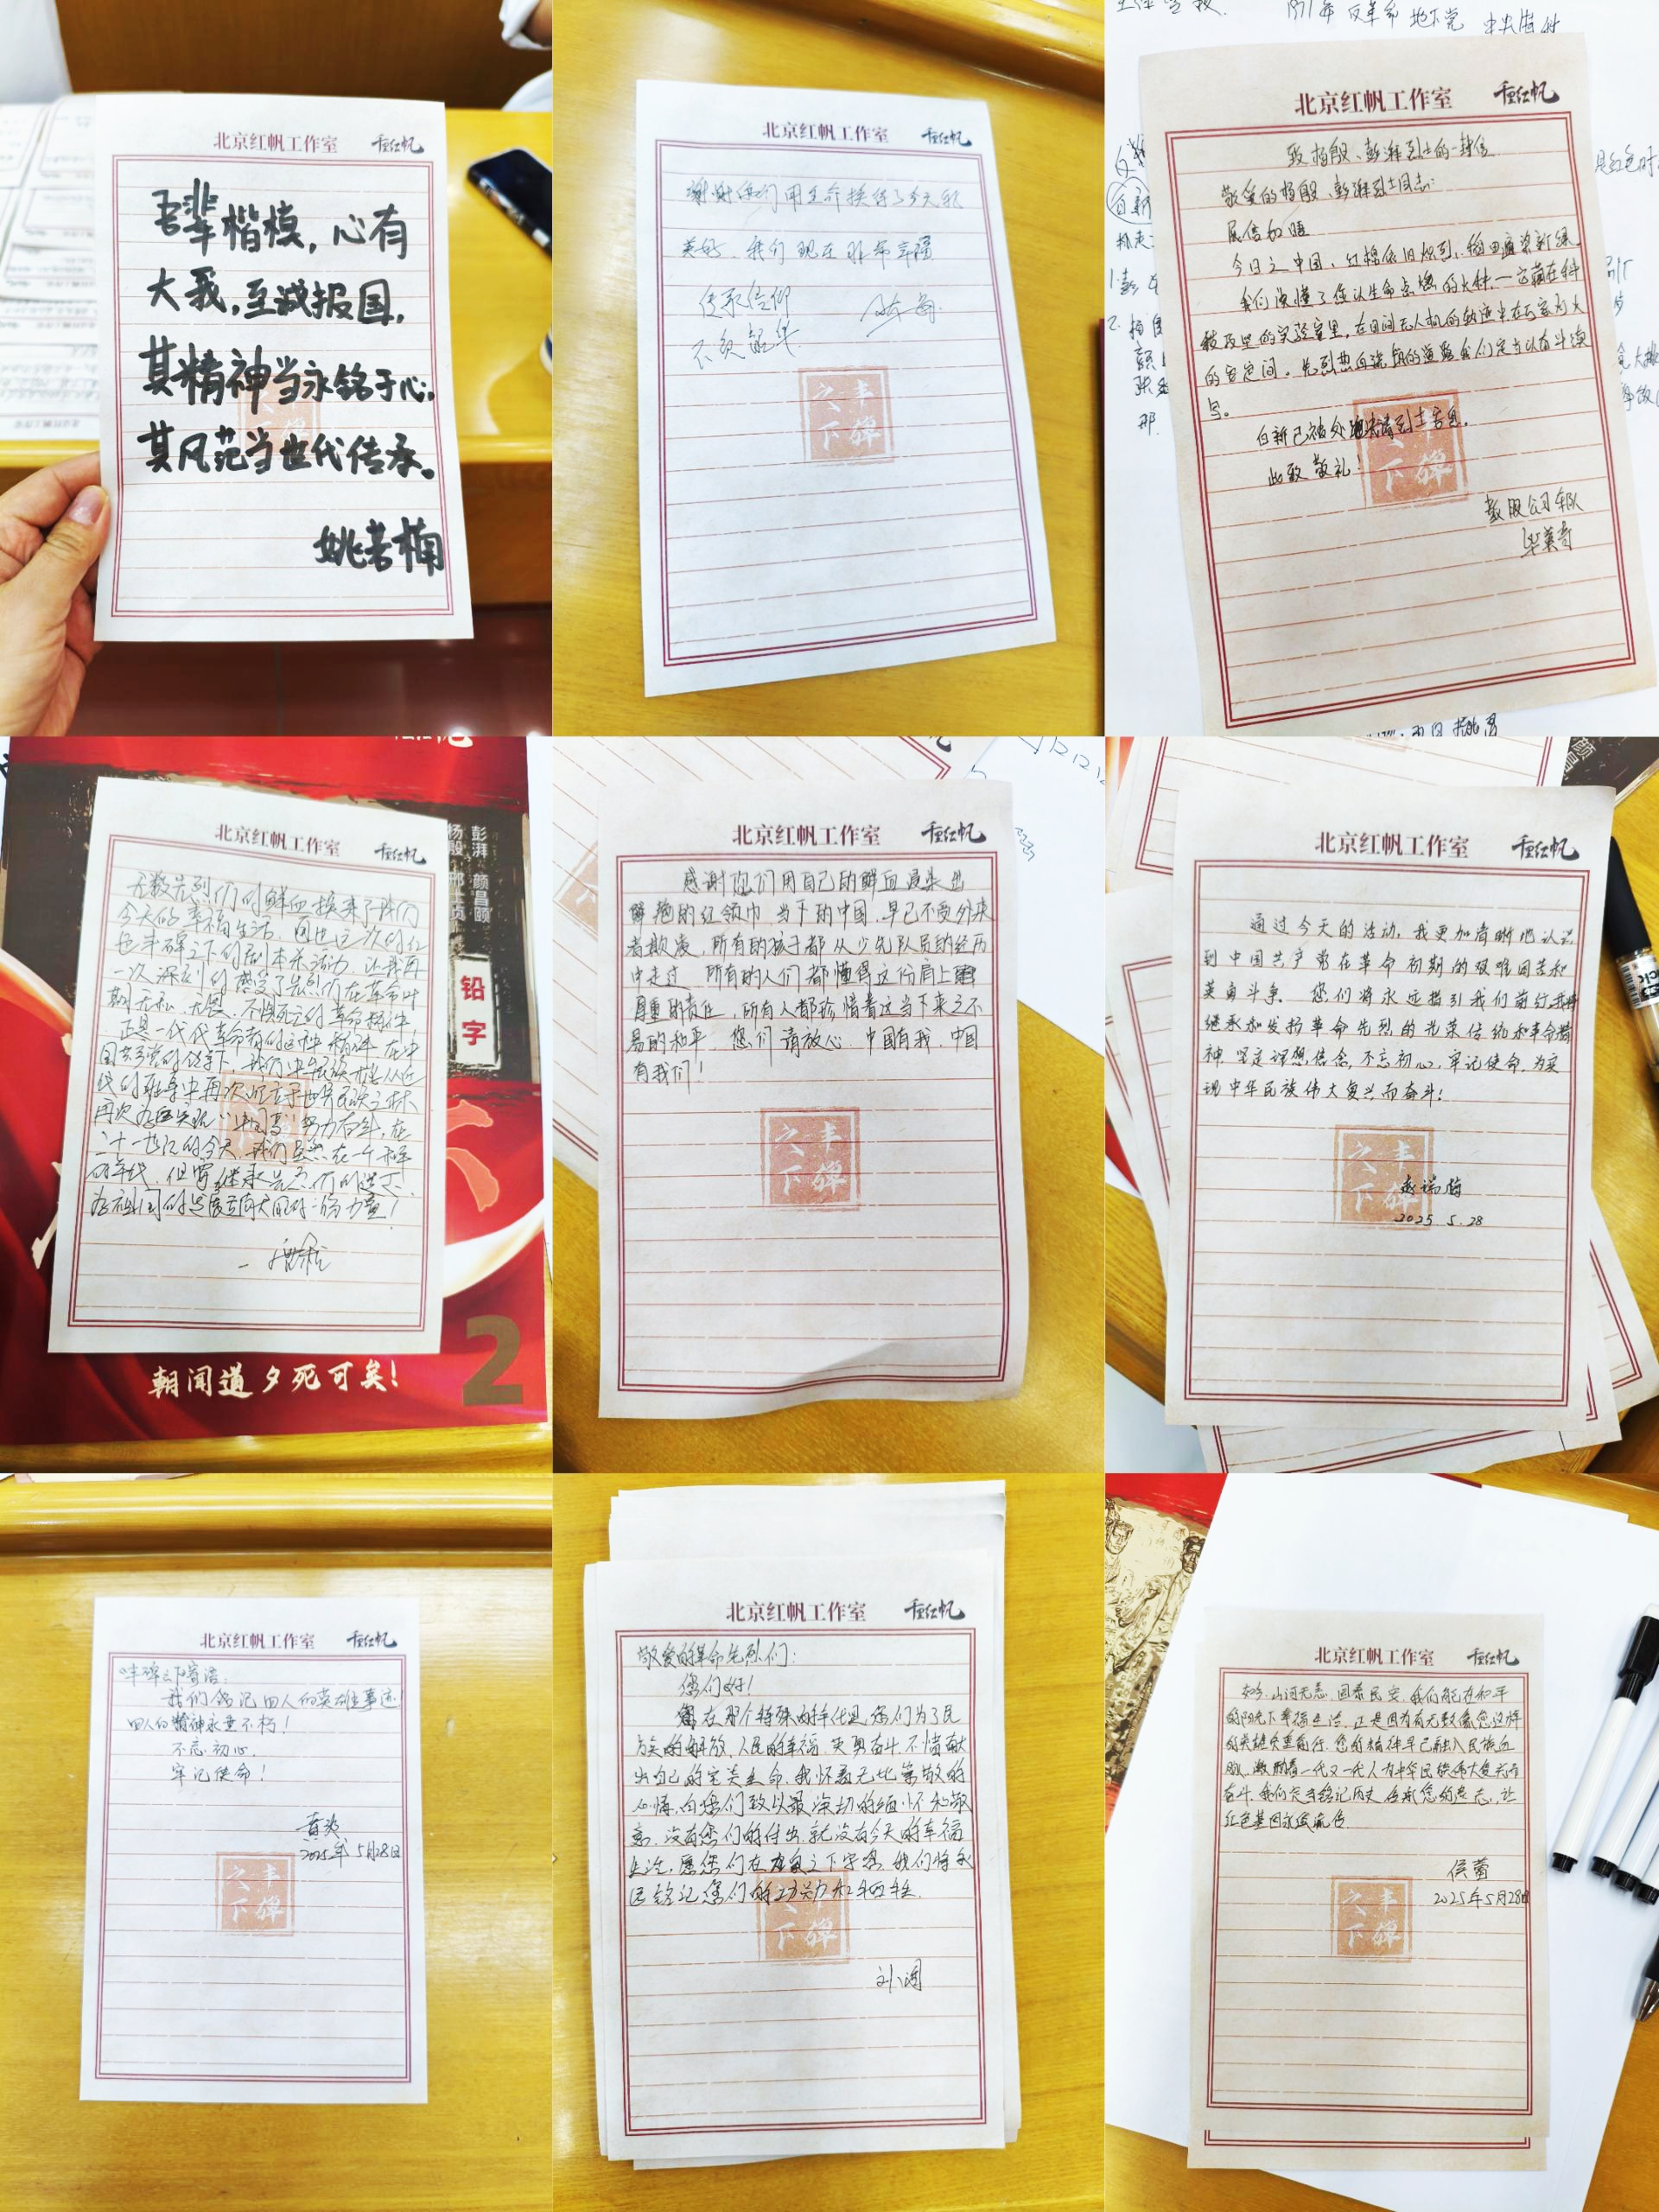 北京红帆工作室 千里红帆
吾辈楷模，心有
大我，至诚报国，
其精神当永铭于心，
其风范当世代传承。
姚若楠
北京红帆工作室 千里红帆
谢谢你们用生命换得了今天的
美好，我们现在非常幸福
传承信仰
不负韶华
丰碑之下
1971年 反革命 地下党
北京红帆工作室 千里红帆
致杨殷、彭湃烈士的一封信
敬爱的杨殷、彭湃烈士同志：
展信如晤
今日之中国，红棉依旧炽烈，稻田遍染新绿。
我们读懂了您以生命点燃的火种——它藏在科
技的实验室里，在田间无人机的轨迹
的 间。先烈热血浇铸的道路我们定当以奋斗续
写。
白新已被处 请烈士安息。
此致 敬礼
丰碑之下
公司车队
毕英奇
北京红帆工作室 千里红帆
彭湃 颜昌颐
杨殷 邢士贞
铅字
无数先烈们的鲜血换来了我们
今天的幸福生活，通过这次的红
色丰碑之下的剧本杀活动，让我再
一次深刻的感受了先烈们在革命时
期无私、无畏、不惧死亡的革命精神
正是一代代革命者的这种精神，在中
国共产党的领导下，我们中华民族才能从近
代的 中再次屹立于世界民族之林
再次为实现“中国梦”努力奋斗，在
二十一世纪的今天，我们虽然在一个和平
的年代，但需继承先烈们的遗志，
为祖国的发展贡献大的一份力量！
朝闻道夕死可矣！
2
北京红帆工作室 千里红帆
感谢您们用自己的鲜血浸染出
鲜艳的红领巾，当下的中国，早已不受外来
者欺凌，所有的孩子都从少先队员的经历
中走过，所有的人们都懂得这份肩上
重的责任，所有人都珍惜着这当下来之不
易的和平，您们请放心，中国有我，中国
有我们！
丰碑之下
北京红帆工作室 千里红帆
通过今天的活动，我更加清晰地认识
到中国共产党在革命初期的艰难困苦和
英勇斗争。您们将永远指引我们前行，我将
继承和发扬革命先烈的光荣传统和革命精
神，坚定理想信念，不忘初心，牢记使命，为实
现中华民族伟大复兴而奋斗！
丰碑之下
赵瑞梅
2025 5.28
北京红帆工作室 千里红帆
丰碑之下寄语：
我们铭记四人的英雄事迹！
四人的精神永垂不朽！
不忘初心，
牢记使命！
黄炎
2025年5月28日
丰碑之下
北京红帆工作室 千里红帆
敬爱的革命先烈们：
您们好！
在那个特殊的年代里，您们为了民
族的解放，人民的幸福，英勇奋斗，不惜献
出自己的宝贵生命，我怀着无比崇敬的
心情，向您们致以最深切的缅怀和敬
意，没有您们的付出，就没有今天的幸福
生活，愿您们在九泉之下安息，我们将永
远铭记您们的功勋和牺牲。
丰碑之下
北京红帆工作室 千里红帆
如今，山河无恙，国泰民安，我们能在和平
的阳光下幸福生活，正是因为有无数像您这样
的英雄负重前行。您的精神早已融入民族血
脉，激励着一代又一代人为中华民族伟大复兴而
奋斗。我们定当铭记历史，传承您的意志，让
红色基因永续流传。
侯蕾
2025年5月28日
丰碑之下